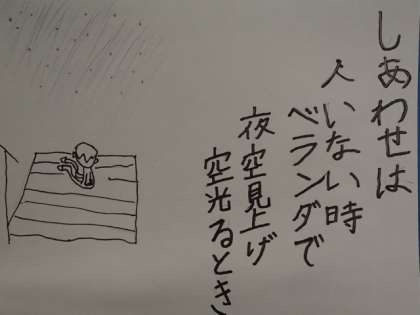 しあわせは
人いない時
ベランダで
夜空見上げ
空光るとき